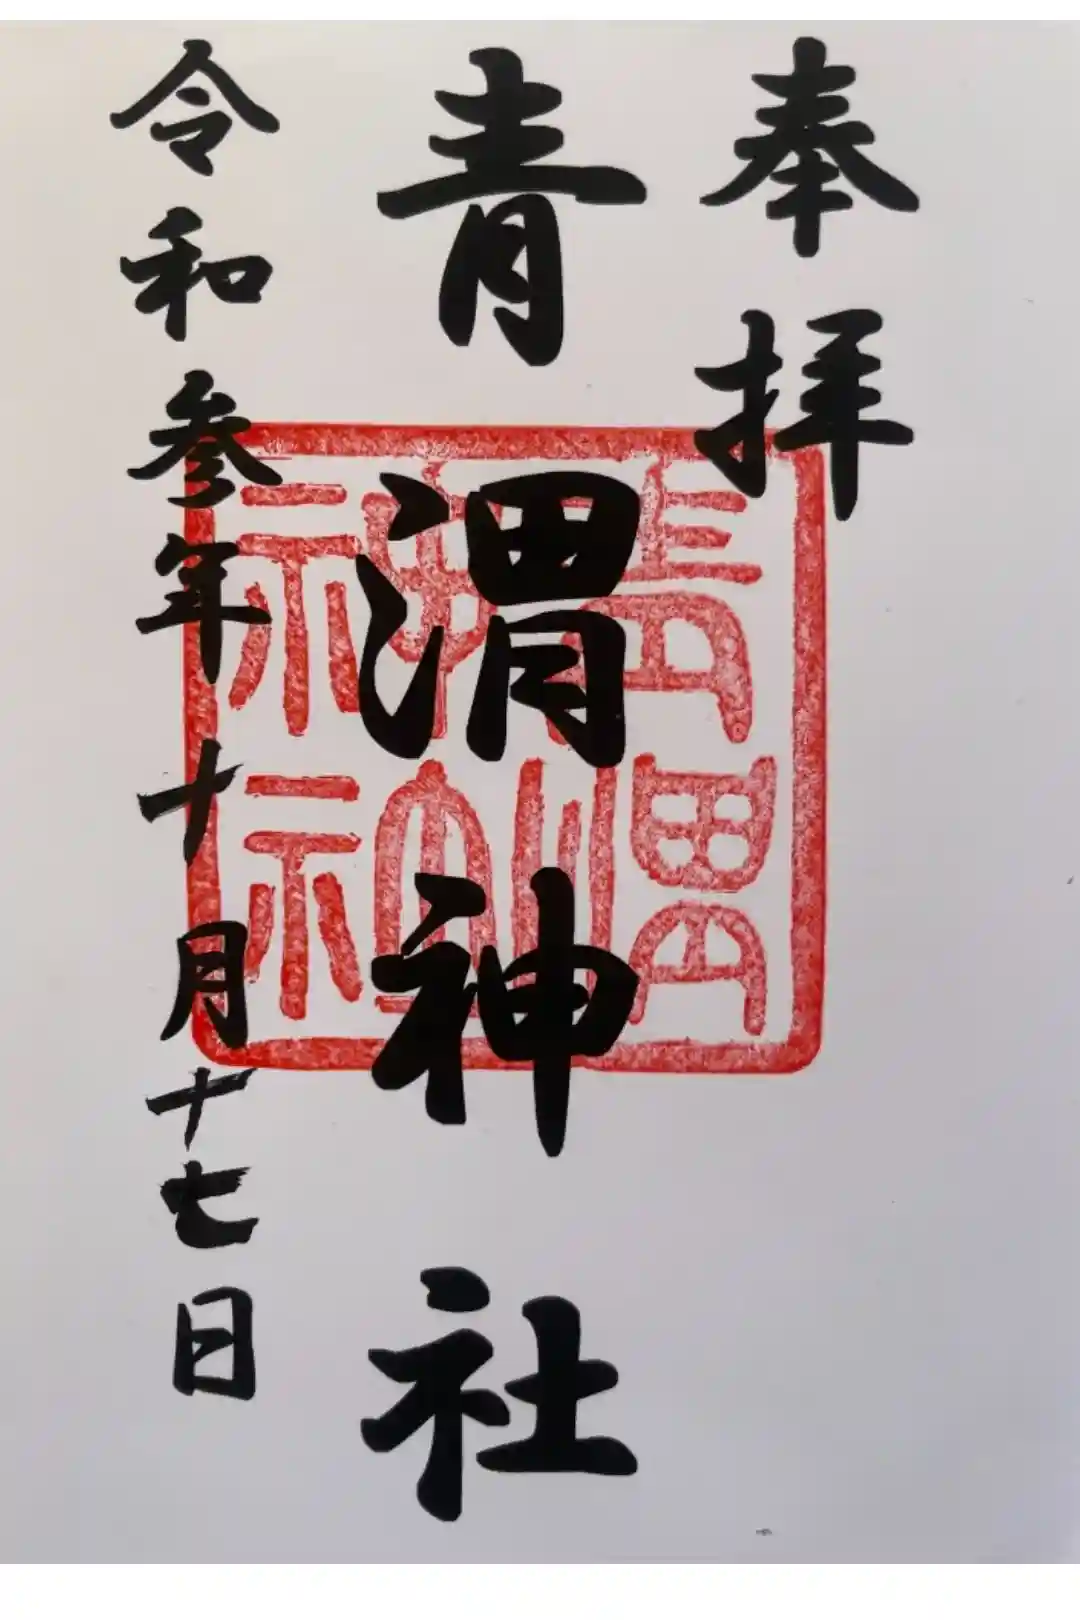 奉拝
青渭神社
令和参年十月十七日
青渭神社